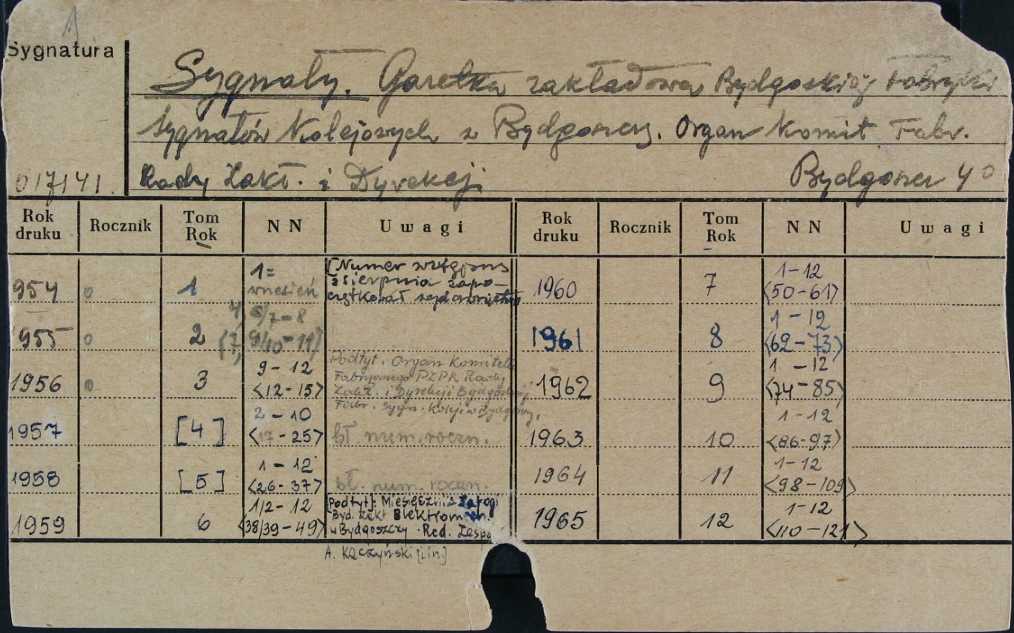 Sygnatura
Sygnały. Gazetka zakładowa Bydgoskiej Fabryki
Sygnałów Kolejowych w Bydgoszczy. Organ Komit. Fabr.
Rady Zakł. i Dyrekcji Bydgoszcz 4°
017141.
Rok druku Rocznik Tom Rok NN Uwagi Rok druku Rocznik Tom Rok NN Uwagi
954 1 1= wrzesień [Numer wstępny z sierpnia zapo- 1960 7 1-12 <50-61>
1955 2 5/7-8 1961 8 1-12 <62-73>
1956 3 9-12 <12-15> Podtyt. Organ Komitetu Fabrycznego PZPR Rady Zakł. i Dyrekcji Bydgoskiej Fabr. Sygn. Kolej. w Bydgoszczy. 1962 9 1-12 <74-85>
1957 [4] 2-10 <17-25> bł. num. roczn. 1963 10 1-12 <86-97>
1958 [5] 1-12 <26-37> bł. num. roczn. 1964 11 1-12 <98-109>
1959 6 1/2-12 <38/39-49> Podtyt: Miesięcznik Załogi Byd. Zakł. Elektrom. w Bydgoszczy. Red. Zesp. 1965 12 1-12 <110-121>
A. Kaczyński [i in]